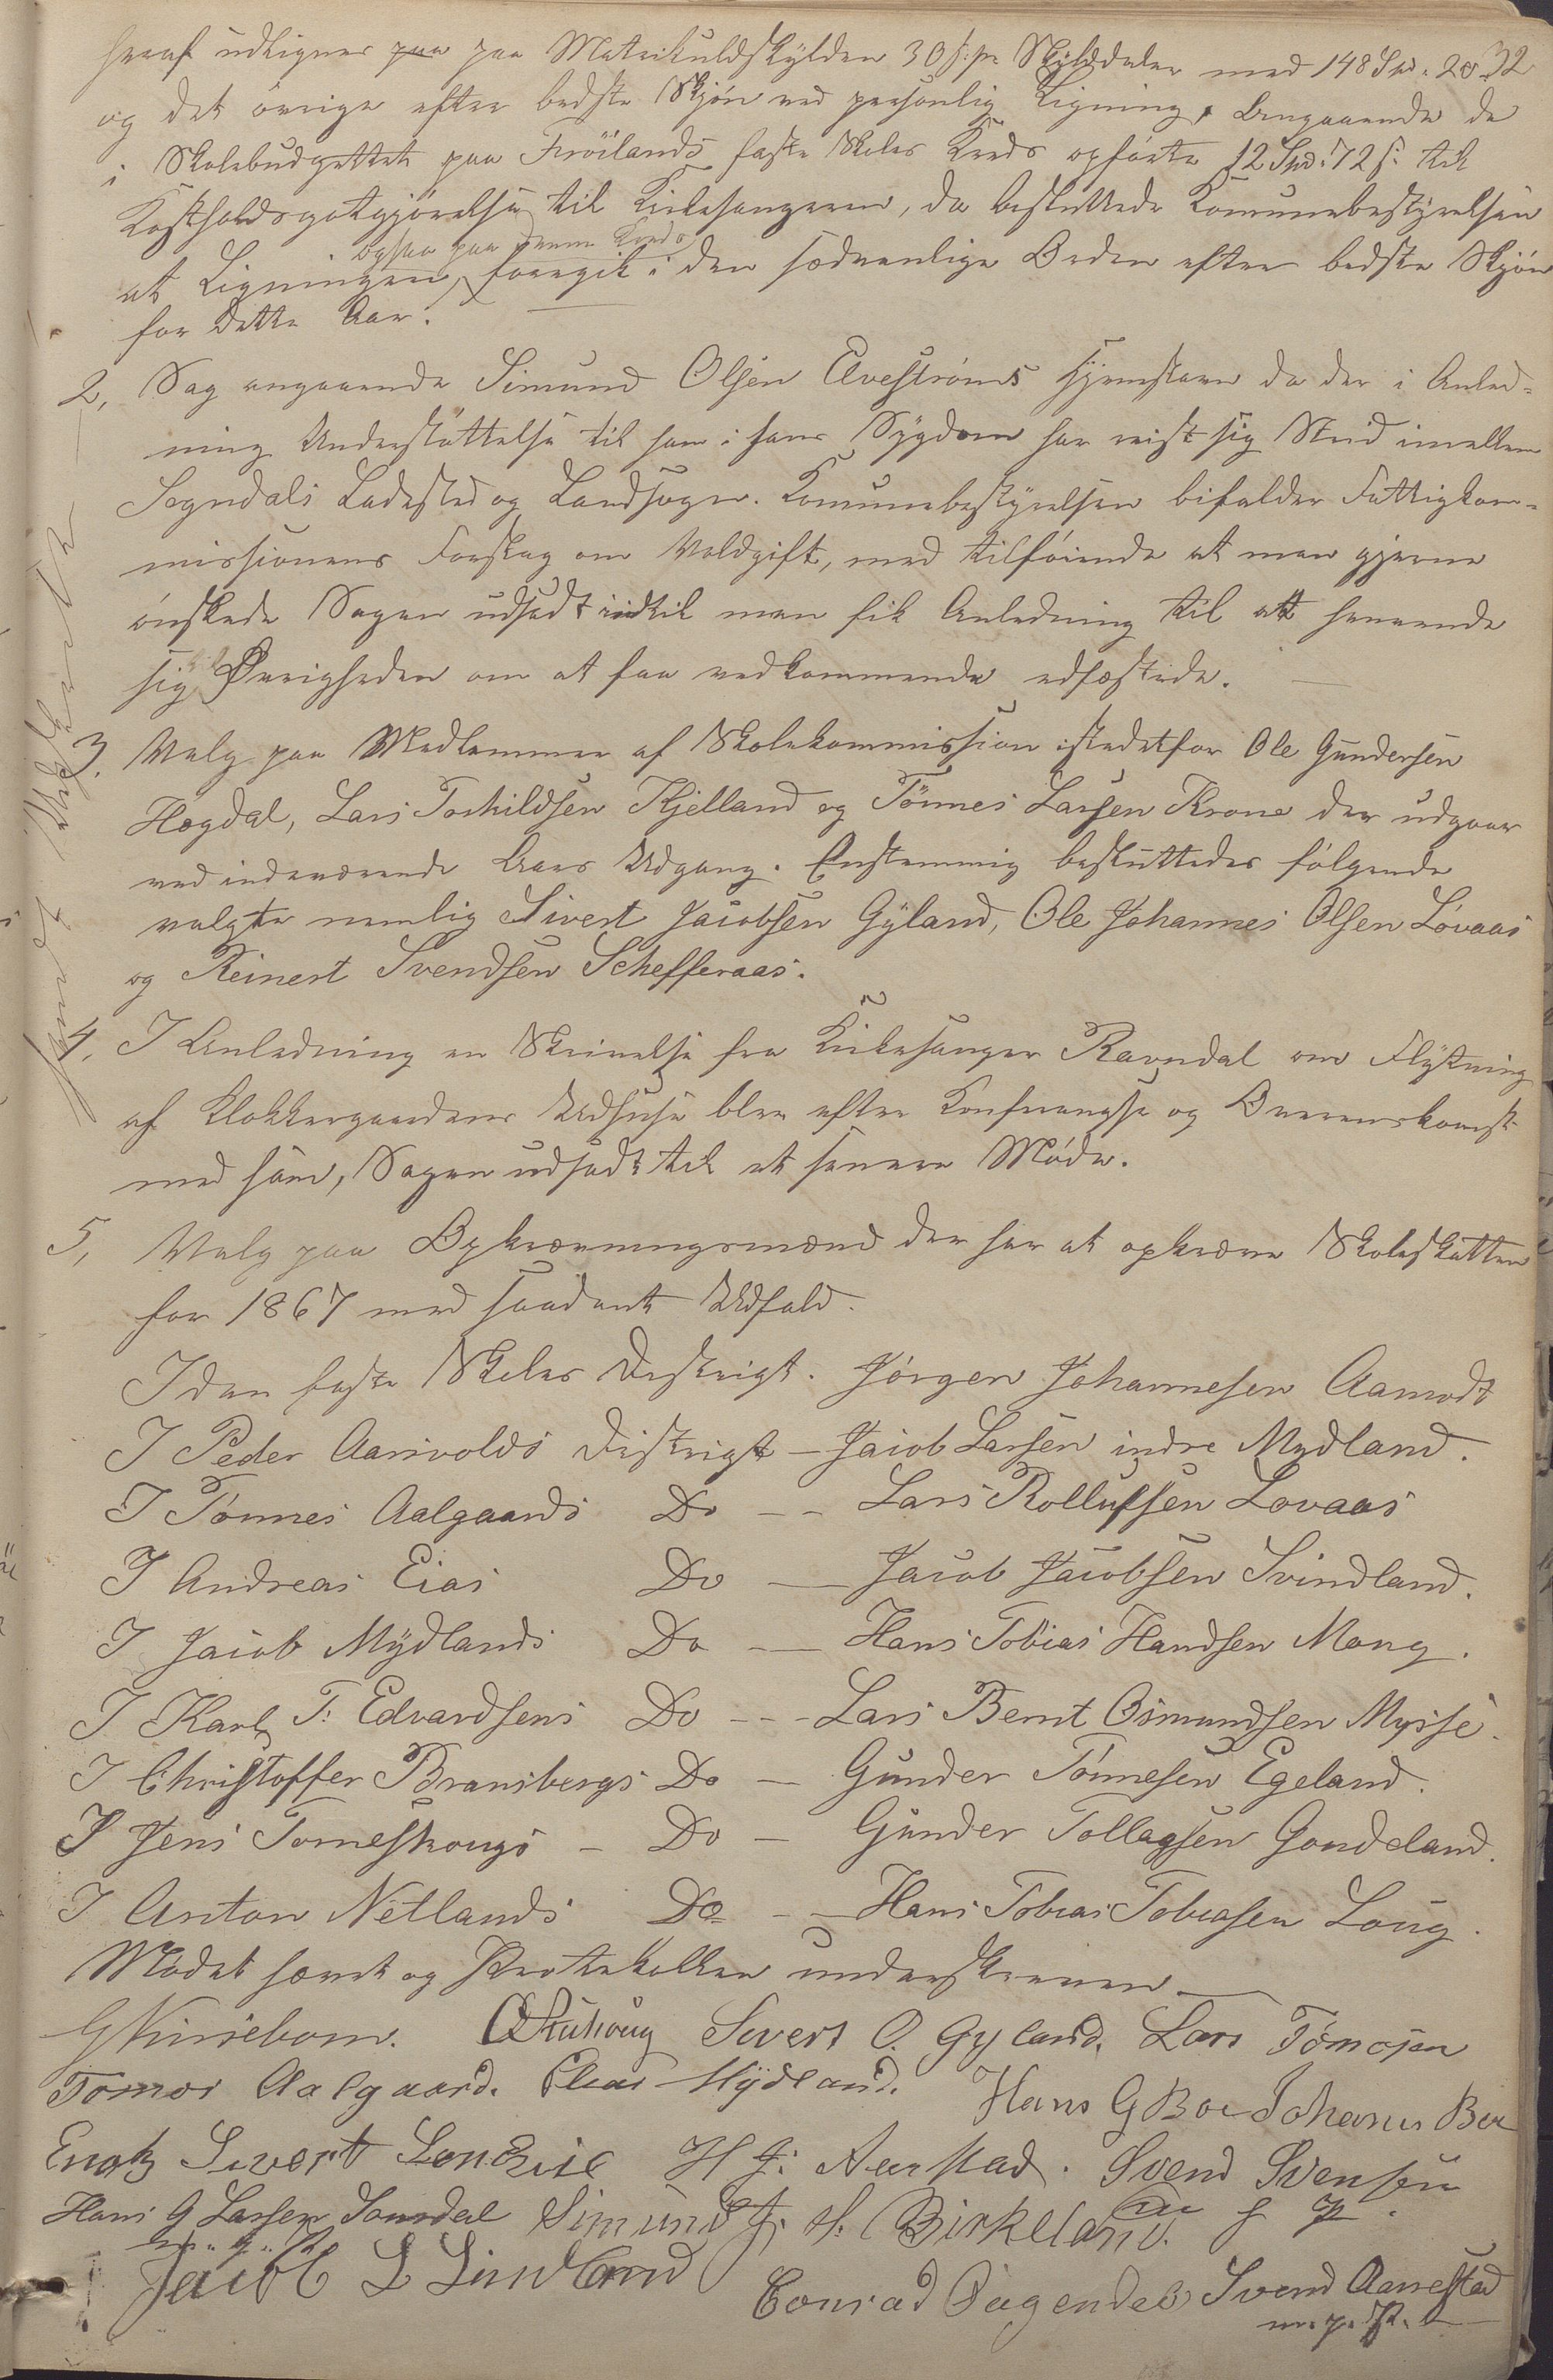 heraf udlignes paa paa Matrikuldskylden 30 s: pr Skylddaler med 148 Spd. 20. 32
og det övrige efter bedste Skjön ved personlig Ligning. Angaaende de
i Skolebudgettet paa Fröilands faste Skoles Kreds opförte 12 Spd. 72 s. til
Kostholdsgodtgjörelse til Kirkesangeren, da besluttede Komunebestyrelsen
ogsaa paa denne Kreds
at Ligningen foregik i den sædvanlige Orden efter bedste Skjön
for dette Aar.
2, Sag angaaende Simund Olsen Elveströms Hjemstavn da der i Anled-
ning Understöttelse til ham i hans Sygdom har reist sig Strid imellem
Sogndals Ladested og Landsogn. Komunebestyrelsen bifalder Fattigkom-
missionens Forslag om Voldgift, med tilföiende at man gjerne
önskede Sagen udsadt indtil man fik Anledning til at henvende
sig til Övrigheden om at faa vedkommende edfæstede.
3. Valg paa Medlemmer af Skolekommission istedetfor Ole Gundersen
Hogdal, Lars Torkildsen Kjelland og Tönnes Larsen Krone der udgaar
ved indeværende Aars Udgang. Enstemmig besluttedes fölgende
valgte nemlig Sivert Jacobsen Gyland, Ole Johannes Olsen Lövaas
og Reinert Svendsen Schefferaas.
4, I Anledning en Skrivelse fra Kirkesanger Ravndal om Flytning
af Klokkergaardens Udhuse blev efter Konferangse og Overenskomst
med ham, Sagen udsadt til et senere Möde.
5, Valg paa Opkrævningsmænd der har at opkræve Skoleskatten
for 1867 med saadant Udfald.
I den faste Skoles Distrigt. Jörgen Johannesen Aamodt
I Peder Aarivolds Distrigt — Jacob Larsen indre Mydland.
I Tönnes Aalgaards Do — Lars Rollufsen Lovaas
I Andreas Eias Do — Jacob Jacobsen Svindland.
I Jacob Mydlands Do — Hans Tobias Handsen Mong.
I Karl T: Edvardsens Do — Lars Bernt Osmundsen Mysse.
I Christoffer Bransbergs Do — Gunder Tönnesen Egeland.
I Jens Torneskougs — Do — Gunder Tollagsen Goudeland.
I Anton Netlands Do — Hans Tobias Tobiasen Loug.
Mödet hævet og Protokollen underskreven
G Kirsebom. Sivert O. Gyland. Lars Tömosen
Tomos Aalgaard. Elias Mydland. Hans G Boe Johanes Boe
Enok Sivert H J: Aarstad. Svend Svensen
Hans G Larsen Simund J. H. Birkeland.
m. p. P.
Jacob L Lindland Conrad Svend Aarrestad
m. p. P.